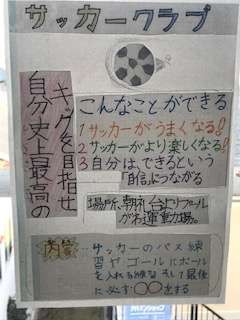 サッカークラブ
自分史上最高の
キックを目指せ
こんなことができる
1サッカーがうまくなる!
2サッカーがより楽しくなる!
3自分は、できるという
「自信」につながる
場所、朝礼台よりプール
がわ運動場。
内容
サッカーのパス練
習やゴールにボール
を入れる練習そして最後
に必ず〇〇をする